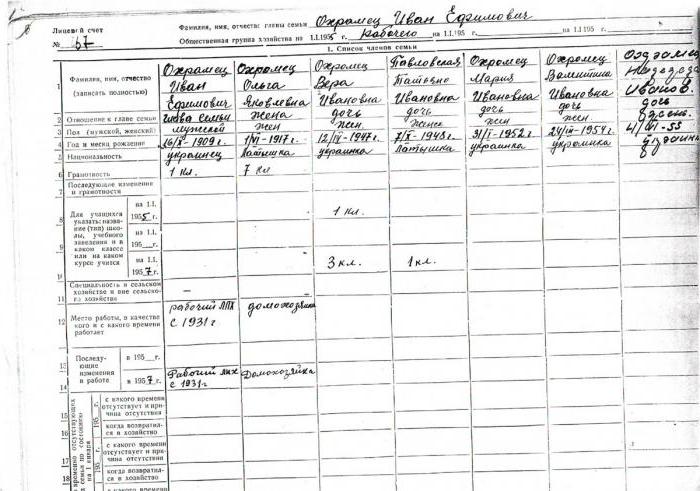 Лицевой счет
№ 67
Фамилия, имя, отчество: главы семьи Охрамец Иван Ефимович
Общественная группа хозяйства на 1.I.1955 г. Рабочего на 1.I.195 г. на 1.I.195 г.
1. Список членов семьи
1 Фамилия, имя, отчество (записать полностью) Охрамец Иван Ефимович Охрамец Ольга Яковлевна Охрамец Вера Ивановна Павловская Ивановна Охрамец Мария Ивановна Охрамец Валентина Ивановна
2 Отношение к главе семьи глава семьи жена дочь дочь дочь дочь дочь
3 Пол (мужской, женский) мужской жен жен. женск жен жен женс.
4 Год и месяц рождения 26/X-1909 г. 1/VI-1917 г. 12/IV-1947 г. 7/I-1948 г. 31/I-1952 г. 24/III-1954 г.
5 Национальность украинец латышка украинка латышка украинка украинка
6 Грамотность 1 кл. 7 кл
7 Последующие изменения в грамотности
8 Для учащихся указать: название (тип) школы, учебного заведения и в каком классе или на каком курсе учится на 1.I. 1955 г. 1 кл.
9 на 1.I. 195 г.
10 на 1.I. 1957 г. 3 кл. 1 кл.
11 Специальность в сельском хозяйстве и вне сельского хозяйства – –
12 Место работы, в качестве кого и с какого времени работает рабочий ЛПХ с 1931 г домохозяйка
13 Последующие изменения в работе в 195 г.
14 в 1957 г. Рабочий лпх с 1931 г Домохозяйка
15 с какого времени отсутствует и причина отсутствия
16 когда возвратился в хозяйство
17 с какого времени отсутствует и причина отсутствия
18 когда возвратился в хозяйство
с какого времени